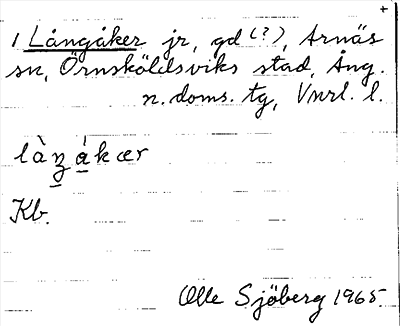 +
1 Långåker jr, gd (?), Arnäs
sn, Örnsköldsviks stad, Ång.
n. doms. tg, Vnrl. l.
làŋ́ákær
Kb.
Olle Sjöberg 1965